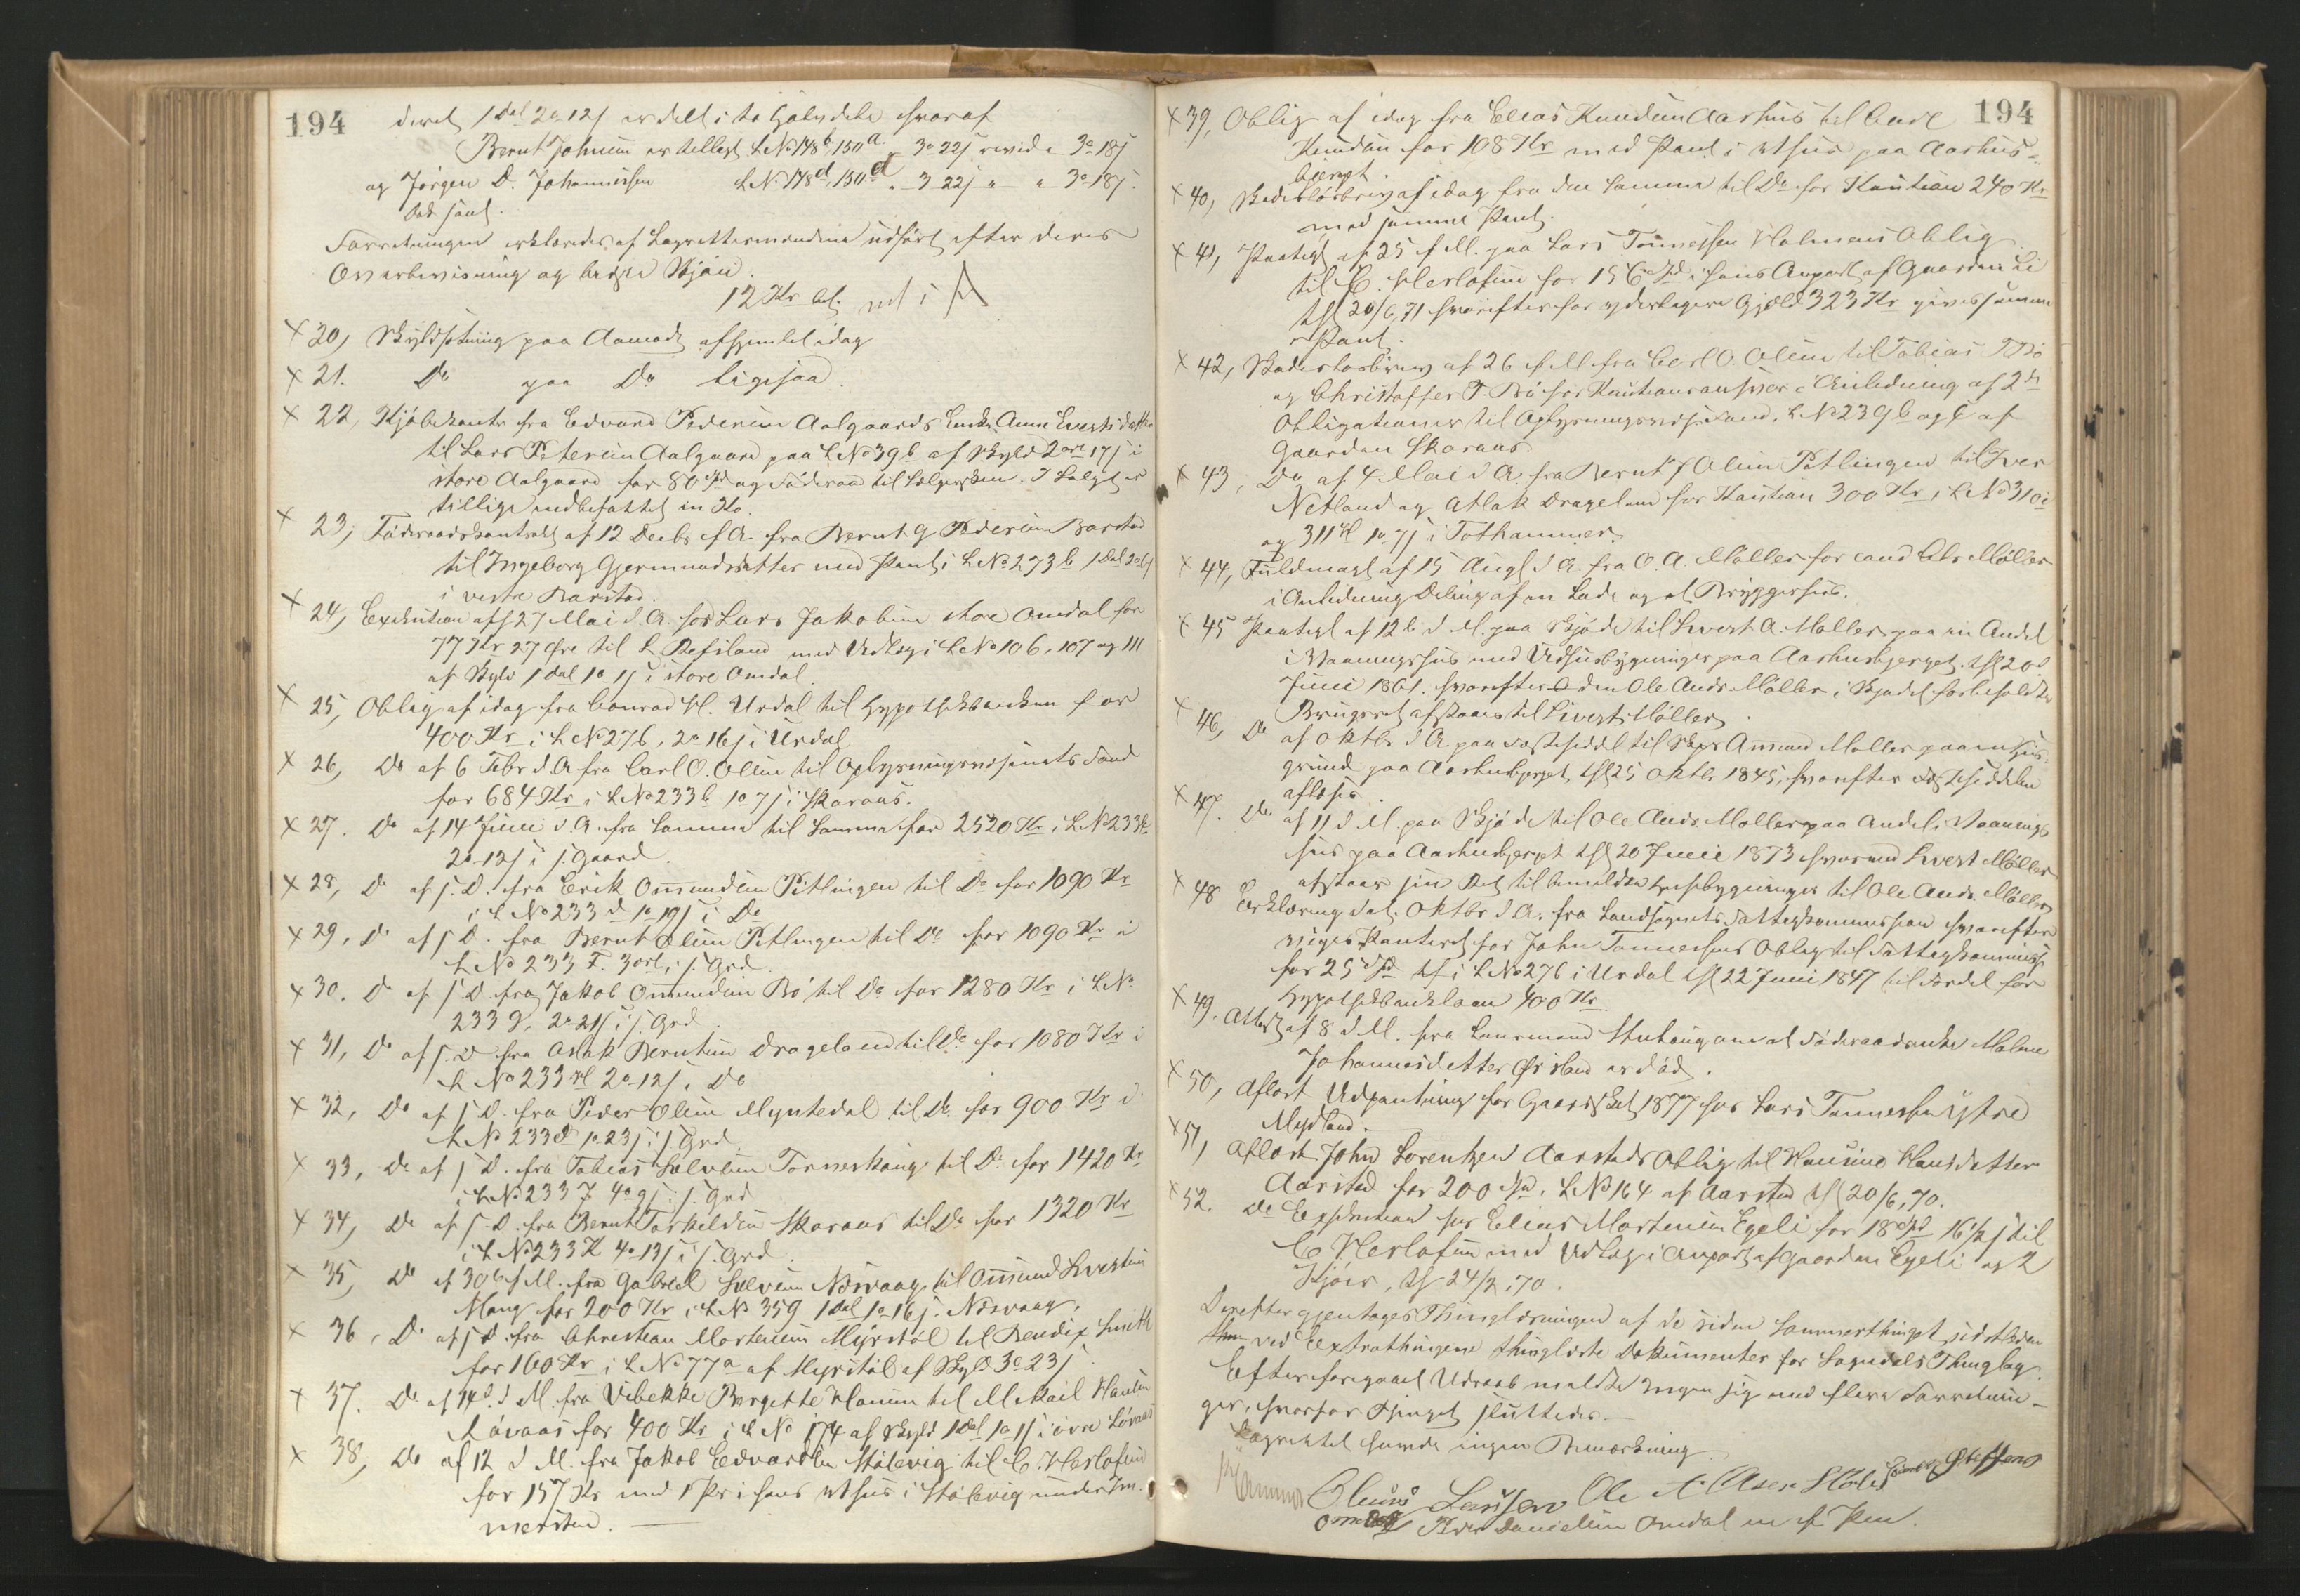 194
deret 1 Dal 2o 12s er delt i to Halvdele hvoraf
Bernt Johnsen er tillagt LNo 148b, 150a 3o 22s revid. 3o 18s
og Jørgen D. Johannessen LNo 148d, 150d 3 22s " " 3o 18s.
Forretningen erklæredes af Lagrettemændene udført efter deres
Overbevisning og bedste Skjøn.
12 Kr bet.
x 20, Skyldsætning paa Aamodt afhjemlet idag
x 21. Do paa Do ligesaa.
x 22, Kjøbekontr fra Edvard Pedersen Aalgaards Enke Anne Evertsdatter
til Lars Petersen Aalgaard paa LNo 39b af Skyld 2 ort 17s i
store Aalgaard for 80 Spd og Føderaad til Sælgersken. I Salget er
tillige indbefattet en Ko.
x 23, Føderaadskontrakt af 12 Decbr f A. fra Bernt G Pedersen Barstad
til Ingeborg Gjermundsdatter med Pant i LNo 273b 1 Dal
i vestre Barstad.
x 24, Exekution af 27 Mai d. A. hos Lars Jakobsen store Omdal for
77 Kr 27 Øre til L Refsland med Udlæg i LNo 106, 107 og 111
af Skyld 1 dal 1o 1s i store Omdal.
x 25, Oblig af idag fra Conrad H. Urdal til Hypothekbanken for
400 Kr i LNo 276, 2o 16s i Urdal
x 26, Do af 6 Febr d. A fra Carl O. Olsen til Oplysningsvæsenets Fond
for 684 Kr i LNo 233b 1o 7s i Skaraas.
x 27. Do af 14 Juni d. A. fra Samme til Samme for 2520 Kr i LNo 233
2o 12s i s. Gaard.
x 28, Do af s. D. fra Erik Ommundsen Pitlingen til Do for 1090 Kr
i LNo 233d 1o 19s i Do
x 29, Do af s D. fra Bernt Olsen Pitlingen til Do for 1090 Kr i
LNo 233 F. 3 ort, i s. Grd.
x 30. Do af s D. fra Jakob Ommundsen Bø til Do for 1280 Kr i LNo
233 g, 2o 21s i s. Grd.
x 31, Do af s. D fra Aslak Berntsen Drageland til Do for 1080 Kr i
LNo 233 H 2o 12s i Do
x 32, Do af s D. fra Peder Olsen Myntedal til Do for 900 Kr i
LNo 233 1o 23s i s Grd.
x 33, Do af s D. fra Tobias Salvesen Tonneshaug til Do for 1420 Kr
i LNo 233 4o 9s i s. Grd
x 34, Do af s. D. fra Bernt Torkeldsen Skaraas til Do for 1320 Kr
i LNo 233 K 4o 13s i s. Grd.
x 35, Do af 30 f M. fra Gabriel Salvesen Nesvaag til Ommund Sivertsen
Haug for 200 Kr i LNo 359 1 dal 1o 16s i Nesvaag.
x 36, Do af s D. fra Christian Mortensen Myrstøl til Bendix Smith
for 160 Kr i LNo 77a af Myrstøl af Skyld 3o 23s.
x 37. Do af 14 d M. fra Vibekke Birgitte Hansen til Mekael Hansen
Løvaas for 400 Kr i LNo 174 af Skyld 1 Dal 1o 1s i øvre Løvaas
x 38, Do af 12 d M. fra Jakob Edvardsen Stølevig til C. Herlofsen
for 157 Kr med 1 Pr i hans Vaahus i Stølevig under
mersted. —
194
x 39, Oblig af idag fra Elias Knudsen Aarhus til Carl
Knudsen for 108 Kr med Pant i et Hus paa Aarhus=
bjerget.
x 40, Skadesløsbrev af idag fra den Samme til Do for Kaution 240 Kr
med samme Pant.
x 41, Paategn af 25 f M. paa Lars Tønnessen Holmens Oblig
til C. Herlofsen for 156 Spd i hans Anpart af Gaarden Li
thl 20/6, 71 hvorefter for yderligere Gjæld 323 Kr gives samme
Pant.
x 42, Skadesløsbrev af 26 f M fra Carl O. Olsen til Tobias T Bø
og Christoffer T. Bø for Kautionsansvar i Anledning af 2de
Obligationer til Oplysningsvæs. Fond. LNo 239b og c af
Gaarden Skaraas.
x 43, Do af 4 Mai d A. fra Bernt J Olsen Pitlingen til Iver
Netland og Aslak Drageland for Kaution 300 Kr i LNo 310
og 311 1o 7s i Tothammer.
x 44, Fuldmagt af 15 Augt d A. fra O. A. Møller for cand Chr Møller
i Anledning Deling af en Lade og et Bryggerhus.
x 45 Paategn af 12 d M. paa Skjøde til Sivert A. Møller paa en Andel
i Vaaningshus med Udhusbygninger paa Aarhusbjerget. thl 20
Juni 1861. hvorefter den Ole Andr Møller i Skjødet forbeholdte
Brugsret afstaaes til Sivert Møller
x 46, Do af Oktbr d A. paa Fæsteseddel til Skpr Ommund Møller paa en Hus=
grund paa Aarhusbjerget, thl 25 Oktbr 1845, hvorefter Fæsteseddelen
afløses.
x 47. Do af 11 d M. paa Skjøde til Ole Andr. Møller paa Andel i Vaanings
hus paa Aarhusbjerget thl 20 Juni 1873 hvormed Sivert Møller
afstaar sin Ret til anmeldte Husebygninger til Ole Andr. Møller
x 48 Erklæring dat. Oktbr d A. fra Landsognets Fattigkommission hvorefter
viges Panteret for John Tønnessens Oblig til Fattigkommiss
for 25 Spd thl i LNo 276 i Urdal thl 22 Juni 1847 til Fordel for
Hypothekbanklaan 400 Kr
x 49. Attest af 8 d. M. fra Lensmand Stuhaug om at Føderaadsenke Malene
Johannesdatter Ørsland er død.
x 50, Aflæst Udpantning for Gaardskat 1877 hos Lars Tønnessen ytre
Mydland. —
x 51, Aflæst John Lorentzen Aarstads Oblig til Hansine Hansdatter
Aarstad for 200 Spd, LNo 164 af Aarstad thl 20/6, 70.
x 52. Do Exekution hos Elias Mortensen Egeli for 18 Spd 16½ s til
C Herlofsen med Udlæg i Anpart af Gaarden Egeli og 2
Kjøer, thl 24/2, 70.
Derefter gjentages Thinglæsningen af de siden Sommerthinget sidstleden
ved Extrathingene thinglæste Dokumenter for Sogndals Thinglag.
Efter foregaaet Udraab meldte Ingen sig med flere Forretnin=
ger, hvorfor Thinget sluttedes. —
Lagrettet havde ingen Bemærkning
Hammer Olaus Larsen Ole A. Olsen Steffens
Omdal Peder Danielsen Omdal m. f. Pen.